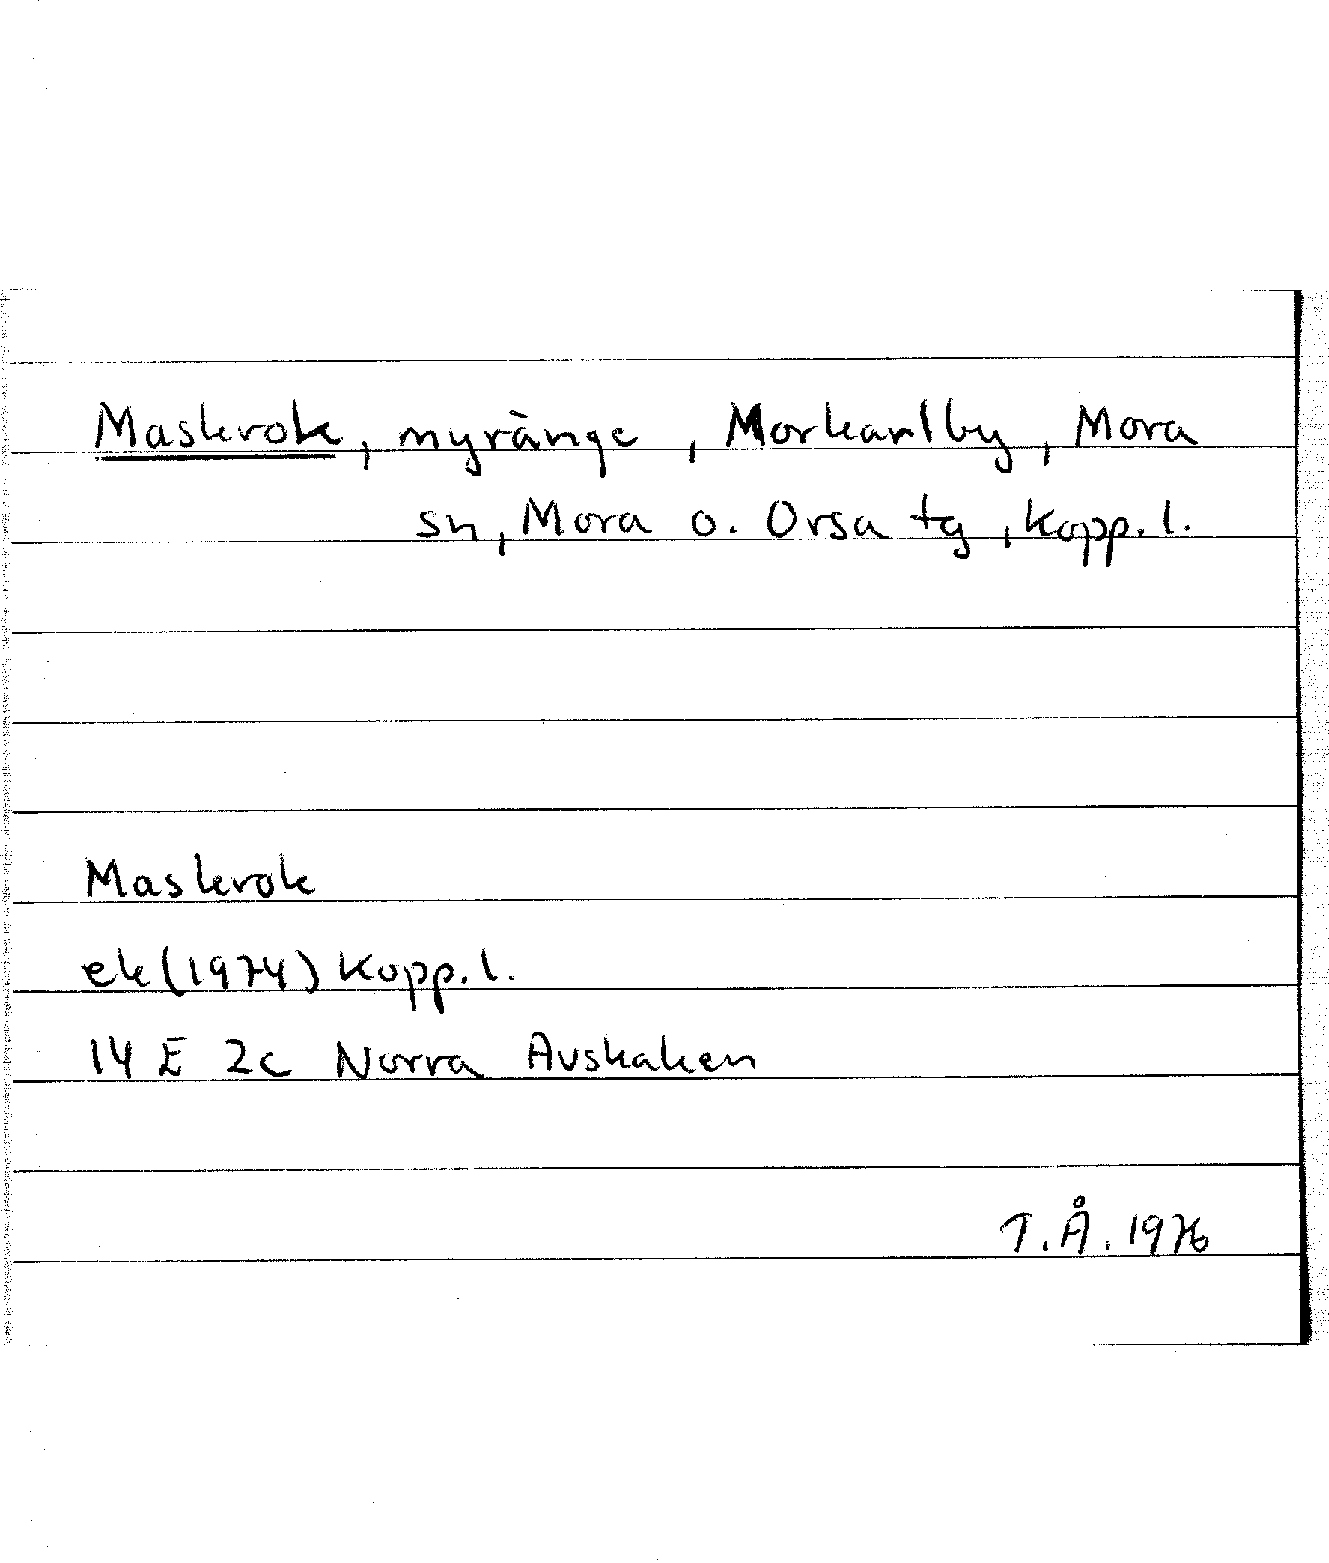 Maskrok, myränge, Morkarlby, Mora
sn, Mora o. Orsa tg, Kopp. l.
Maskrok
ek (1974) Kopp. l.
14 E 2c Norra Avskaken
T. Å. 1976